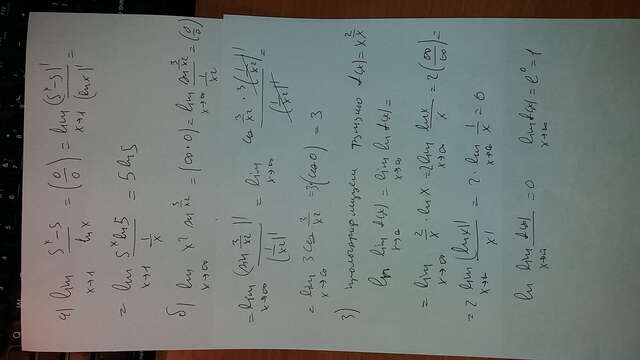 а) lim x→1 (5^x − 5)/(ln x) = (0/0) = lim x→1 (5^x − 5)'/(ln x)' =
= lim x→1 (5^x ln5)/(1/x) = 5 ln5
б) lim x→∞ x² sin 3/x² = (∞·0) = lim x→∞ (sin 3/x²)/(1/x²) = (0/0)
= lim x→∞ (sin 3/x²)'/(1/x²)' = lim x→∞ (cos 3/x² · 3(1/x²)')/(1/x²)' =
= lim x→∞ 3 cos 3/x² = 3(cos 0) = 3
3) функцию f(x) = x^(2/x)
ln lim x→∞ f(x) = lim x→∞ ln f(x) =
= lim x→∞ 2/x · ln x = 2 lim x→∞ (ln x)/x = 2(∞/∞) =
= 2 lim x→∞ (ln x)'/x' = 2 · lim x→∞ 1/x = 0
ln lim x→∞ f(x) = 0 lim x→∞ f(x) = e⁰ = 1